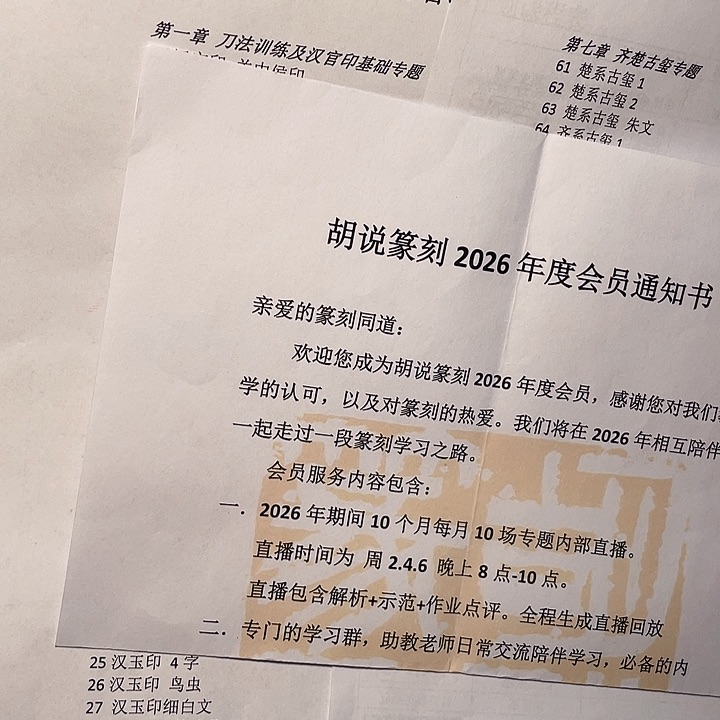 第一章 刀法训练及汉官印基础专题
第七章 齐楚古玺专题
61 楚系古玺 1
62 楚系古玺 2
63 楚系古玺 朱文
64 齐系古玺 1
胡说篆刻 2026 年度会员通知书
亲爱的篆刻同道：
欢迎您成为胡说篆刻 2026 年度会员，感谢您对我们
学的认可，以及对篆刻的热爱。我们将在 2026 年相互陪伴
一起走过一段篆刻学习之路。
会员服务内容包含：
一．2026 年期间 10 个月每月 10 场专题内部直播。
直播时间为 周 2.4.6 晚上 8 点-10 点。
直播包含解析+示范+作业点评。全程生成直播回放
二．专门的学习群，助教老师日常交流陪伴学习，必备的内
25 汉玉印 4 字
26 汉玉印 鸟虫
27 汉玉印细白文